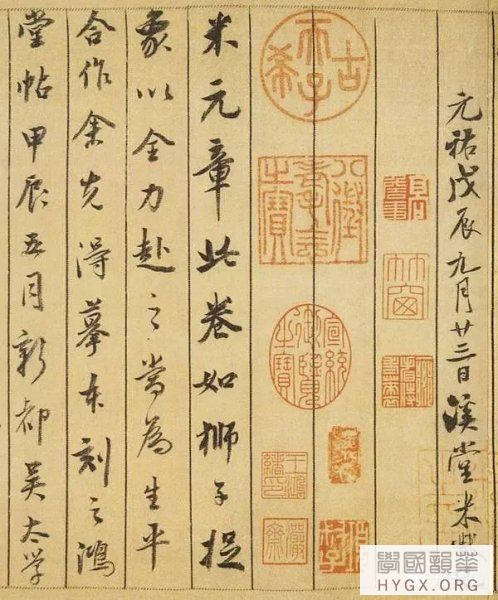 元祐戊辰九月廿三日溪堂米黻
竹窗
古希天子
八徵耄念之寶
宣統御覽之寶
王鴻緒印
儼齋
米元章此卷如獅子捉
象以全力赴之當為生平
合作余先得摹本刻之鴻
堂帖甲辰五月新都吳太學
華韻國學
HYGX.ORG